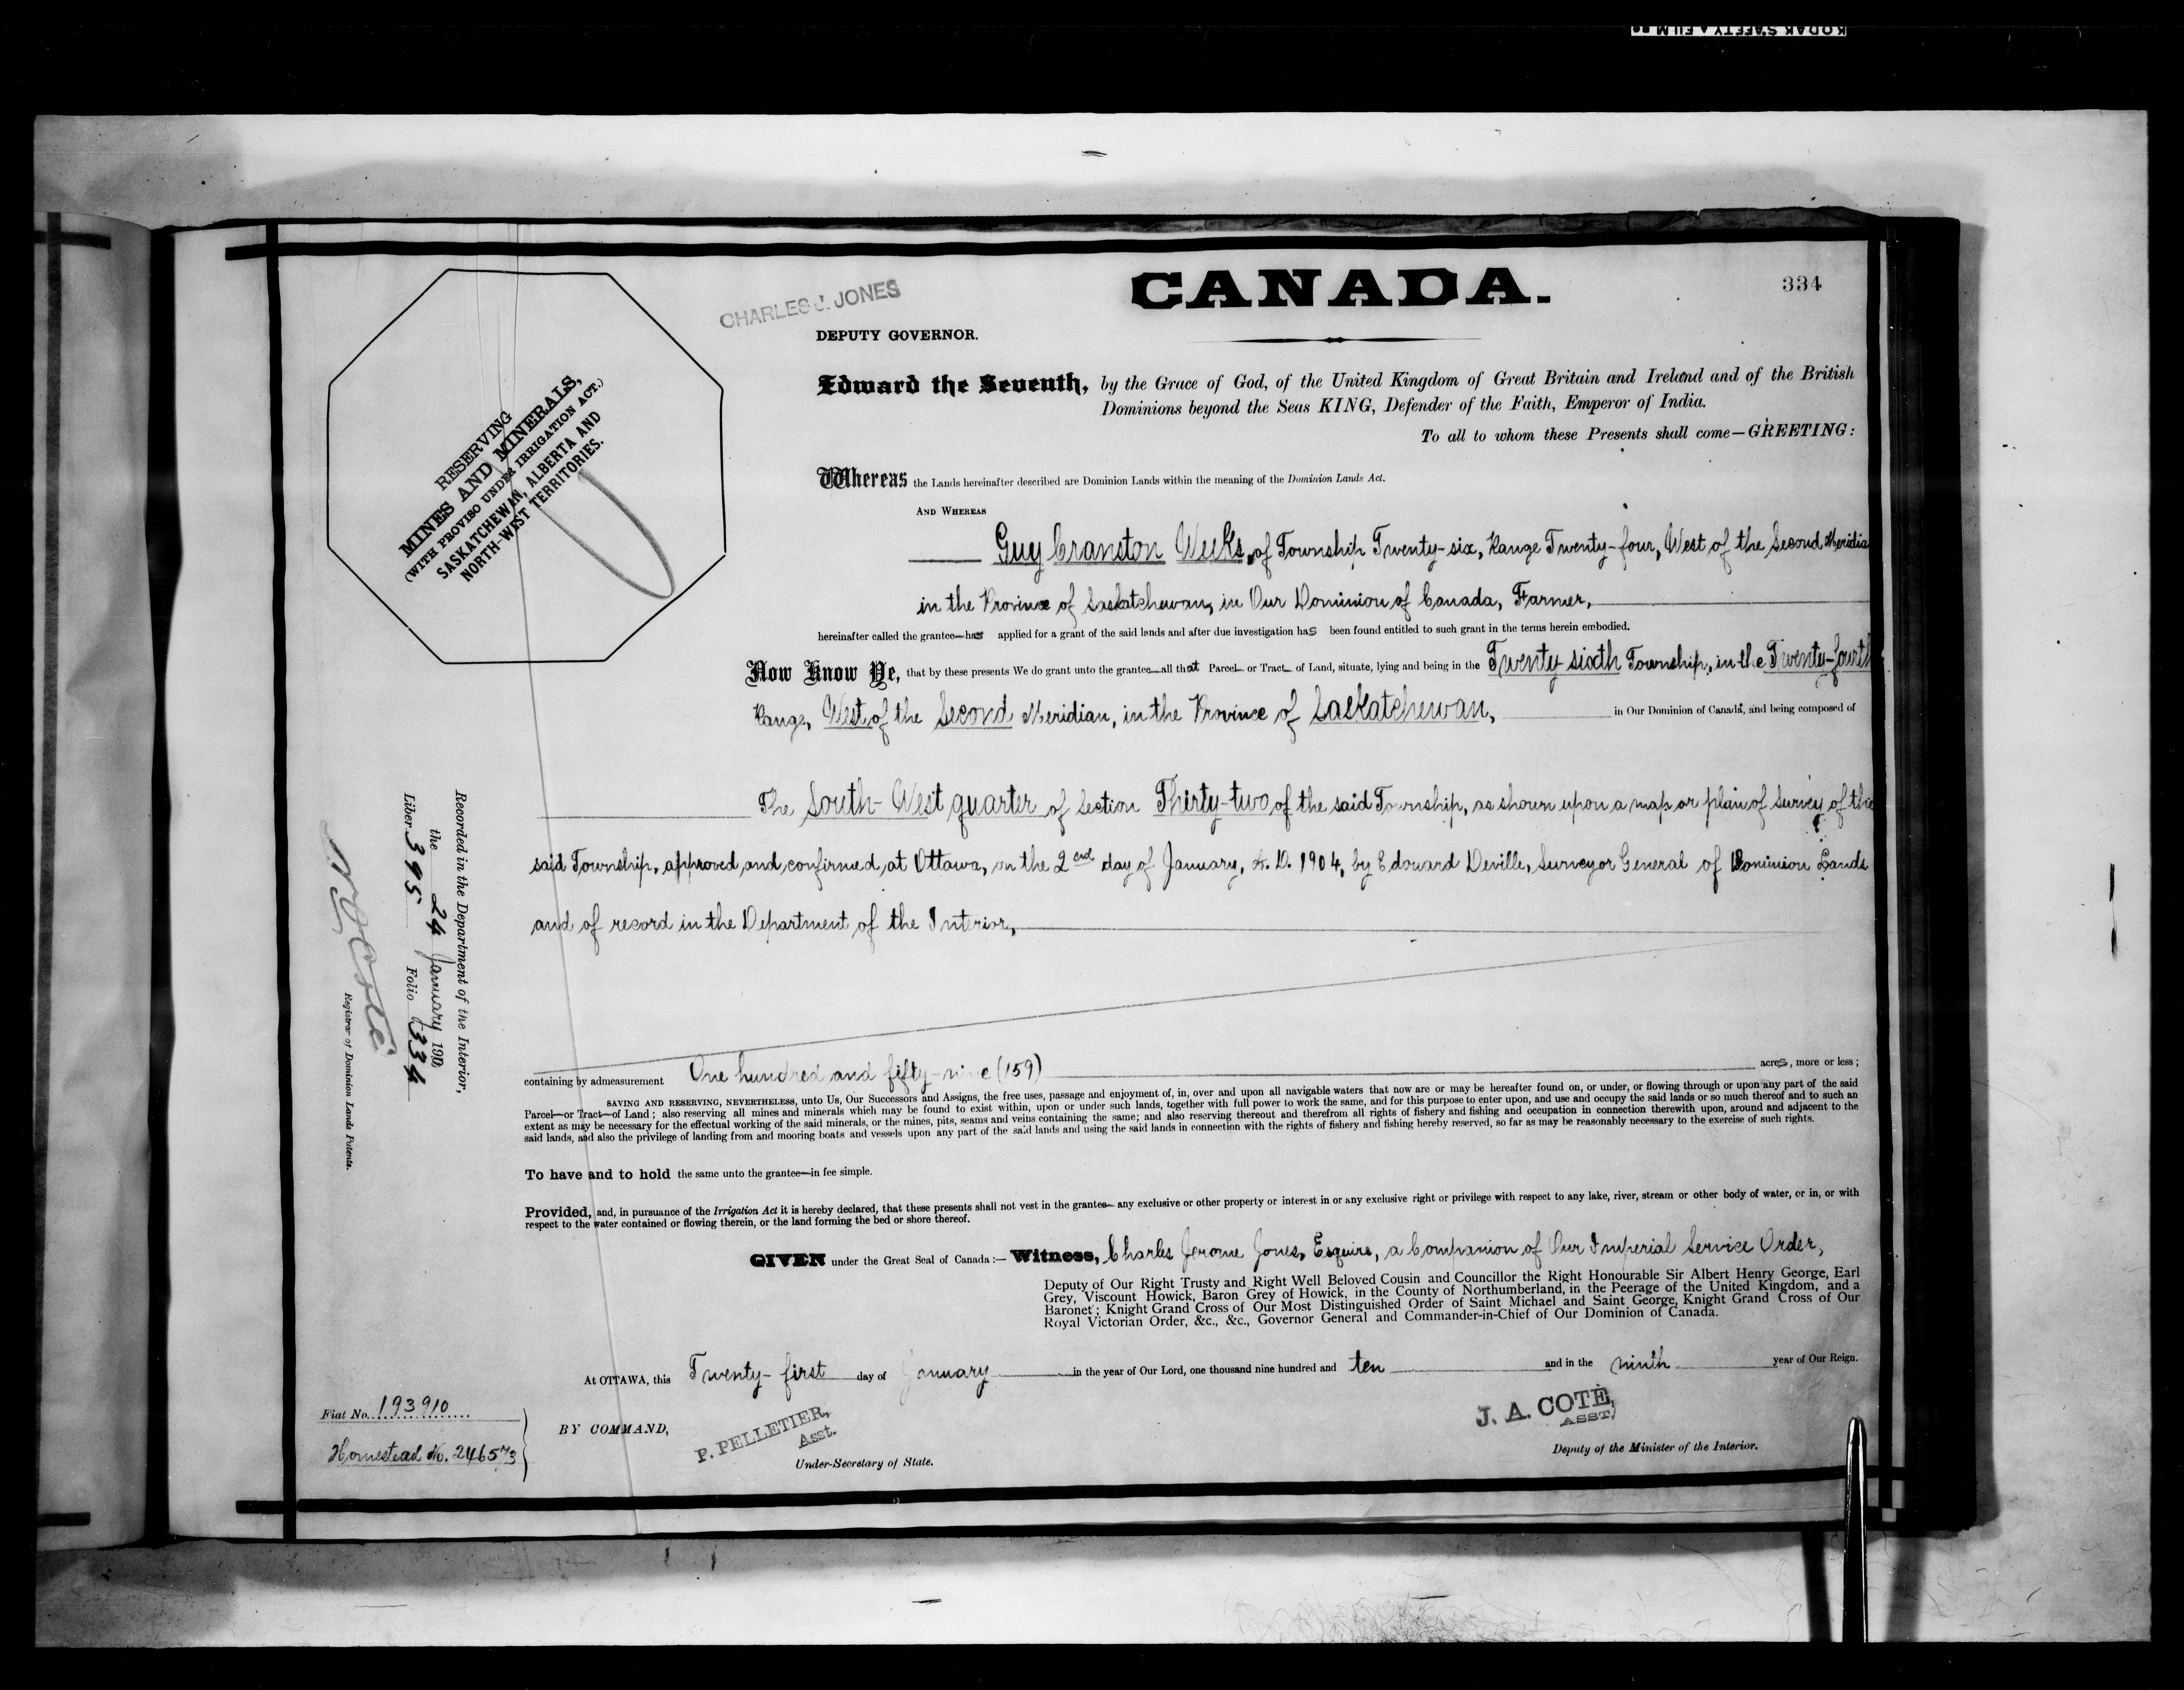 KODAK SAFETY FILM
CANADA.
334
CHARLES J. JONES
DEPUTY GOVERNOR.
RESERVING
MINES AND MINERALS,
(WITH PROVISO UNDER IRRIGATION ACT.)
SASKATCHEWAN, ALBERTA AND
NORTH-WEST TERRITORIES.
Edward the Seventh, by the Grace of God, of the United Kingdom of Great Britain and Ireland and of the British
Dominions beyond the Seas KING, Defender of the Faith, Emperor of India.
To all to whom these Presents shall come—GREETING:
Whereas the Lands hereinafter described are Dominion Lands within the meaning of the Dominion Lands Act.
AND WHEREAS
Guy Cranston Weeks, of Township Twenty-six, Range Twenty-four, West of the Second Meridia
in the Province of Saskatchewan, in Our Dominion of Canada, Farmer,
hereinafter called the grantee—has applied for a grant of the said lands and after due investigation has been found entitled to such grant in the terms herein embodied.
Now Know Ye, that by these presents We do grant unto the grantee—all that Parcel— or Tract— of Land, situate, lying and being in the Twenty-sixth Township, in the Twenty-fourth
Range, West of the Second Meridian, in the Province of Saskatchewan, in Our Dominion of Canada, and being composed of
The South-West quarter of Section Thirty-two of the said Township, as shown upon a map or plan of survey of the
said Township, approved and confirmed, at Ottawa, on the 2nd day of January, A.D. 1904, by Edouard Deville, Surveyor General of Dominion Lands
and of record in the Department of the Interior,
containing by admeasurement One hundred and fifty-nine (159) acres, more or less;
SAVING AND RESERVING, NEVERTHELESS, unto Us, Our Successors and Assigns, the free uses, passage and enjoyment of, in, over and upon all navigable waters that now are or may be hereafter found on, or under, or flowing through or upon any part of the said
Parcel—or Tract—of Land; also reserving all mines and minerals which may be found to exist within, upon or under such lands, together with full power to work the same, and for this purpose to enter upon, and use and occupy the said lands or so much thereof and to such an
extent as may be necessary for the effectual working of the said minerals, or the mines, pits, seams and veins containing the same; and also reserving thereout and therefrom all rights of fishery and fishing and occupation in connection therewith upon, around and adjacent to the
said lands, and also the privilege of landing from and mooring boats and vessels upon any part of the said lands and using the said lands in connection with the rights of fishery and fishing hereby reserved, so far as may be reasonably necessary to the exercise of such rights.
To have and to hold the same unto the grantee—in fee simple.
Provided, and, in pursuance of the Irrigation Act it is hereby declared, that these presents shall not vest in the grantee— any exclusive or other property or interest in or any exclusive right or privilege with respect to any lake, river, stream or other body of water, or in, or with
respect to the water contained or flowing therein, or the land forming the bed or shore thereof.
GIVEN under the Great Seal of Canada:— Witness, Charles Jerome Jones, Esquire, a Companion of Our Imperial Service Order,
Deputy of Our Right Trusty and Right Well Beloved Cousin and Councillor the Right Honourable Sir Albert Henry George, Earl
Grey, Viscount Howick, Baron Grey of Howick, in the County of Northumberland, in the Peerage of the United Kingdom, and a
Baronet; Knight Grand Cross of Our Most Distinguished Order of Saint Michael and Saint George, Knight Grand Cross of Our
Royal Victorian Order, &c., &c., Governor General and Commander-in-Chief of Our Dominion of Canada.
At OTTAWA, this Twenty-first day of January in the year of Our Lord, one thousand nine hundred and ten and in the ninth year of Our Reign.
BY COMMAND,
P. PELLETIER,
Asst.
Under-Secretary of State.
J. A. COTÉ,
ASST.
Deputy of the Minister of the Interior.
Recorded in the Department of the Interior,
the 24 January 190
Liber 395 Folio 334
N.O. Coté
Registrar of Dominion Lands Patents.
Fiat No. 193910
Homestead No. 246573